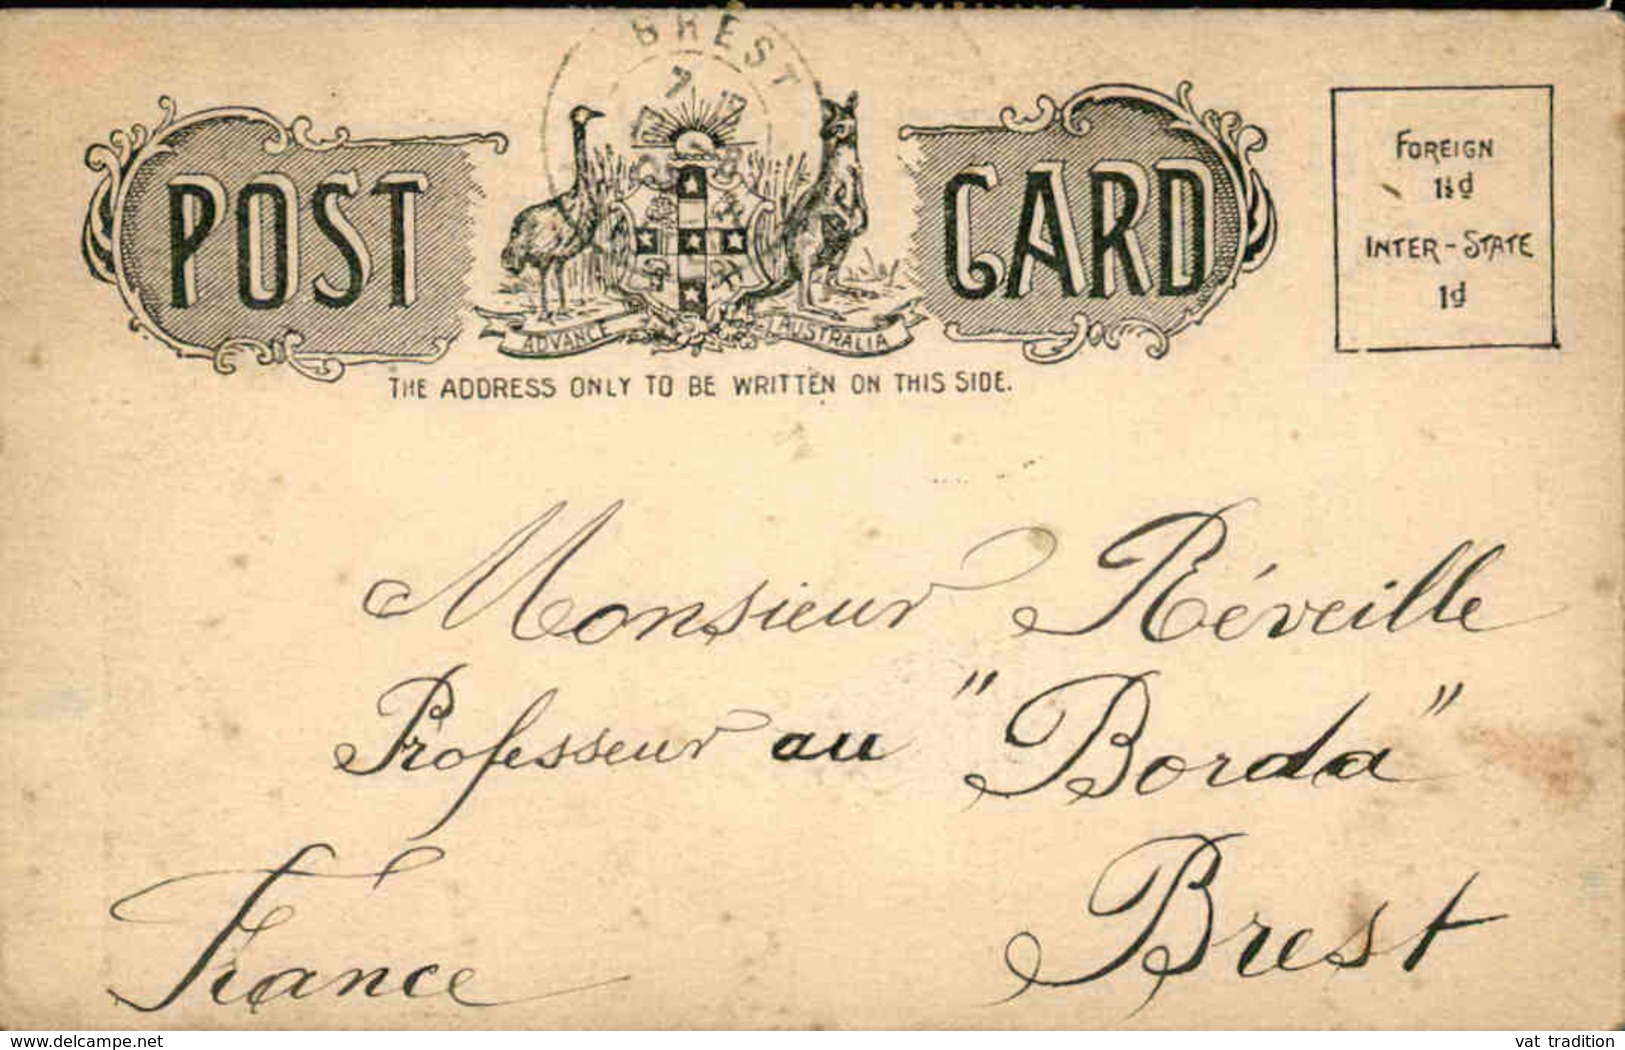 BREST
7
POST CARD
ADVANCE AUSTRALIA
THE ADDRESS ONLY TO BE WRITTEN ON THIS SIDE.
FOREIGN
1½d
INTER-STATE
1d
Monsieur Réveille
Professeur au "Borda"
Brest
France
delcampe.net
vat tradition